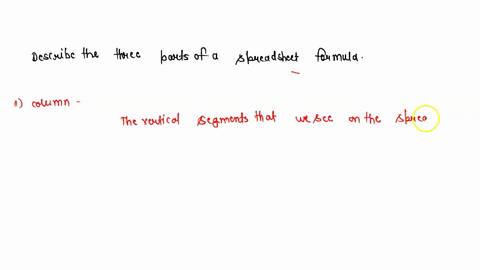 Describe the three parts of a spreadsheet formula.
1) column -
The vertical segments that we see on the sprea